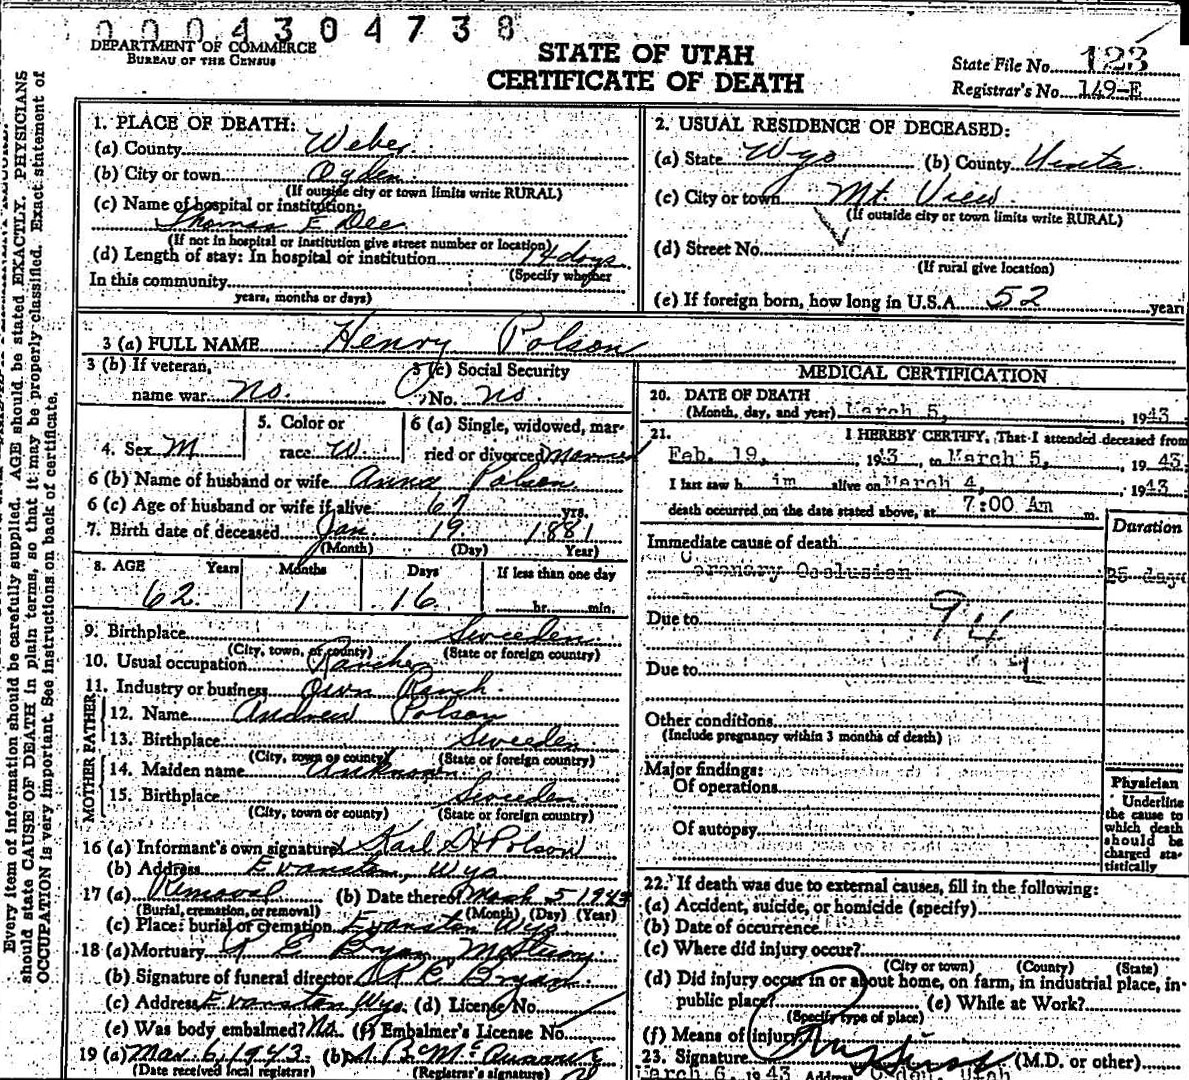 0004304738
DEPARTMENT OF COMMERCE
BUREAU OF THE CENSUS
STATE OF UTAH
CERTIFICATE OF DEATH
State File No. 123
Registrar's No. 149-E
Every item of information should be carefully supplied. AGE should be stated EXACTLY. PHYSICIANS
should state CAUSE OF DEATH in plain terms, so that it may be properly classified. Exact statement of
OCCUPATION is very important. See instructions on back of certificate.
1. PLACE OF DEATH:
(a) County Weber
(b) City or town Ogden
(If outside city or town limits write RURAL)
(c) Name of hospital or institution:
Thomas E Dee
(If not in hospital or institution give street number or location)
(d) Length of stay: In hospital or institution 14 days
(Specify whether
In this community
years, months or days)
2. USUAL RESIDENCE OF DECEASED:
(a) State Wyo (b) County Uinta
(c) City or town Mt. View
(If outside city or town limits write RURAL)
(d) Street No.
(If rural give location)
(e) If foreign born, how long in U.S.A. 52 years
3 (a) FULL NAME Henry Polson
3 (b) If veteran,
name war no.
3 (c) Social Security
No. no.
4. Sex M
5. Color or
race W
6 (a) Single, widowed, mar-
ried or divorced Married
6 (b) Name of husband or wife Anna Polson
6 (c) Age of husband or wife if alive 67 yrs.
7. Birth date of deceased Jan. 19 1881
(Month) (Day) Year)
8. AGE Years Months Days If less than one day
62 1 16 hr. min.
9. Birthplace Sweeden
(City, town, or county) (State or foreign country)
10. Usual occupation Rancher
11. Industry or business Own Ranch
FATHER
12. Name Andrew Polson
13. Birthplace Sweeden
(City, town or county) (State or foreign country)
MOTHER
14. Maiden name Unknown
15. Birthplace Sweeden
(City, town or county) (State or foreign country)
16 (a) Informant's own signature Karl H Polson
(b) Address Evanston, Wyo
17 (a) Removal (b) Date thereof March 5 1943
(Burial, cremation, or removal) (Month) (Day) (Year)
(c) Place: burial or cremation Evanston Wyo
18 (a) Mortuary R E Bryan Mortuary
(b) Signature of funeral director R E Bryan
(c) Address Evanston Wyo. (d) License No.
(e) Was body embalmed? No (f) Embalmer's License No.
19 (a) Mar. 6, 1943. (b)
(Date received local registrar) (Registrar's signature)
MEDICAL CERTIFICATION
20. DATE OF DEATH
(Month, day, and year) March 5, 1943
21. I HEREBY CERTIFY, That I attended deceased from
Feb. 19, 193, to March 5, 1943
I last saw him alive on March 4, 1943
death occurred on the date stated above, at 7:00 Am m.
Duration
Immediate cause of death
Coronary Occlusion
days
Due to 94
Due to
Other conditions
(Include pregnancy within 3 months of death)
Major findings:
Of operations
Of autopsy
Physician
Underline
the cause to
which death
should be
charged sta-
tistically
22. If death was due to external causes, fill in the following:
(a) Accident, suicide, or homicide (specify)
(b) Date of occurrence
(c) Where did injury occur?
(City or town) (County) (State)
(d) Did injury occur in or about home, on farm, in industrial place, in
public place? (e) While at Work?
(Specify type of place)
(f) Means of injury
23. Signature (M.D. or other)
March 6, 1943 Address Ogden, Utah